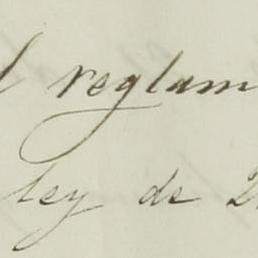 l reglam
ley de 2